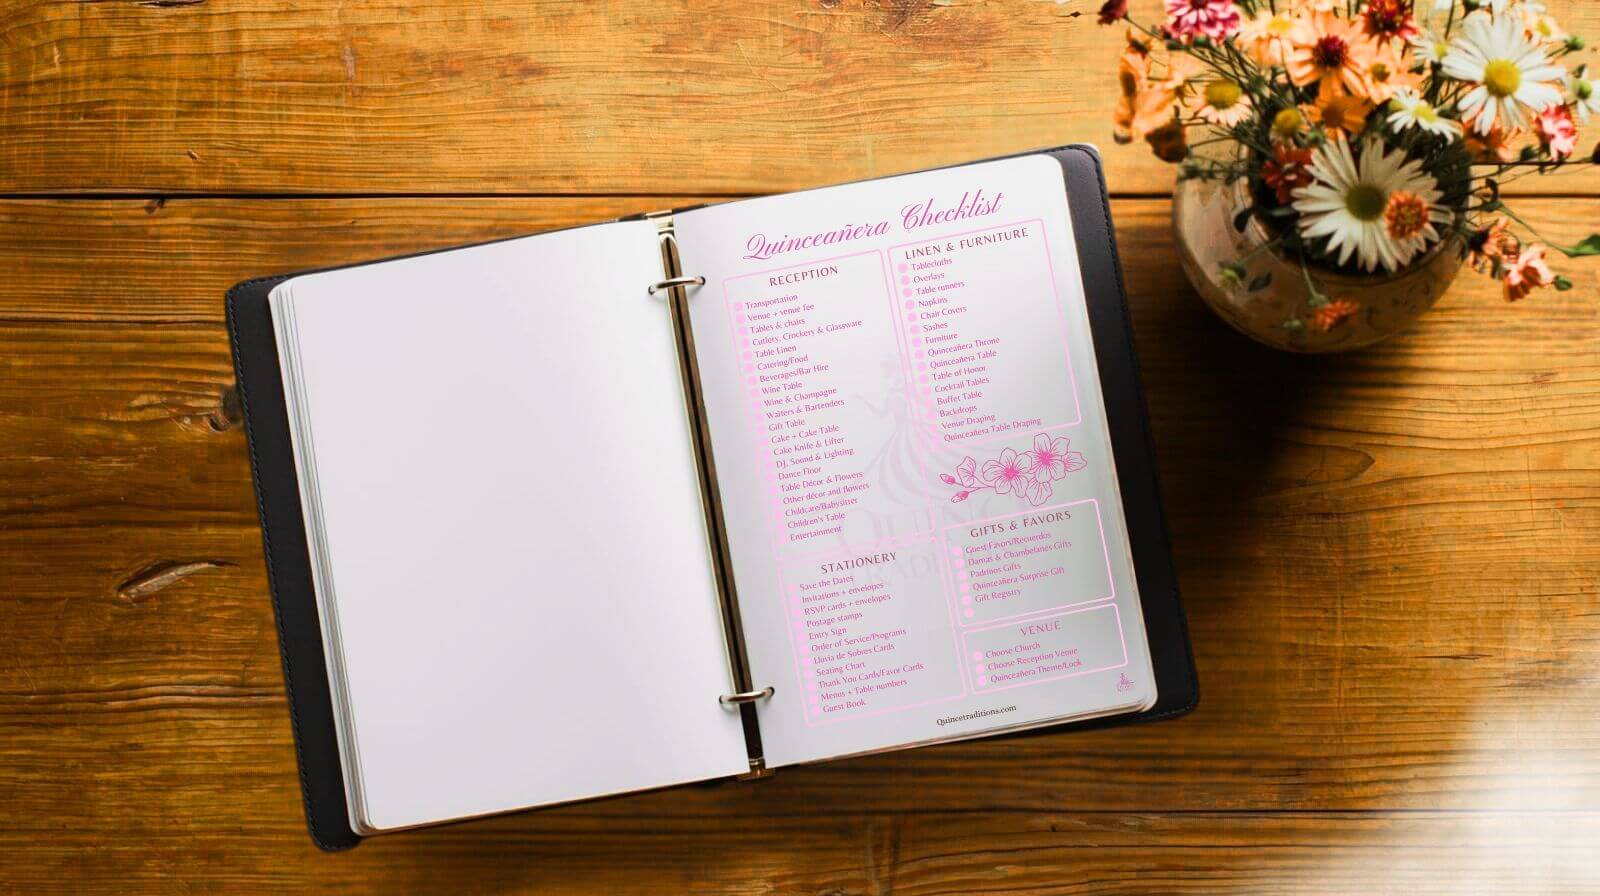 Quinceañera Checklist
RECEPTION
Transportation
Venue + venue fee
Tables & chairs
Cutlery, Crockery & Glassware
Table Linen
Catering/Food
Beverages/Bar Hire
Wine Table
Wine & Champagne
Waiters & Bartenders
Gift Table
Cake + Cake Table
Cake Knife & Lifter
DJ, Sound & Lighting
Dance Floor
Table Décor & Flowers
Other décor and flowers
Childcare/Babysitter
Children's Table
Entertainment
STATIONERY
Save the Dates
Invitations + envelopes
RSVP cards + envelopes
Postage stamps
Entry Sign
Order of Service/Programs
Lluvia de Sobres Cards
Seating Chart
Thank You Cards/Favor Cards
Menus + Table numbers
Guest Book
LINEN & FURNITURE
Tablecloths
Overlays
Table runners
Napkins
Chair Covers
Sashes
Furniture
Quinceañera Throne
Quinceañera Table
Table of Honor
Cocktail Tables
Buffet Table
Backdrops
Venue Draping
Quinceañera Table Draping
GIFTS & FAVORS
Guest Favors/Recuerdos
Damas & Chambelanes Gifts
Padrinos Gifts
Quinceañera Surprise Gift
Gift Registry
VENUE
Choose Church
Choose Reception Venue
Quinceañera Theme/Look
Quincetraditions.com